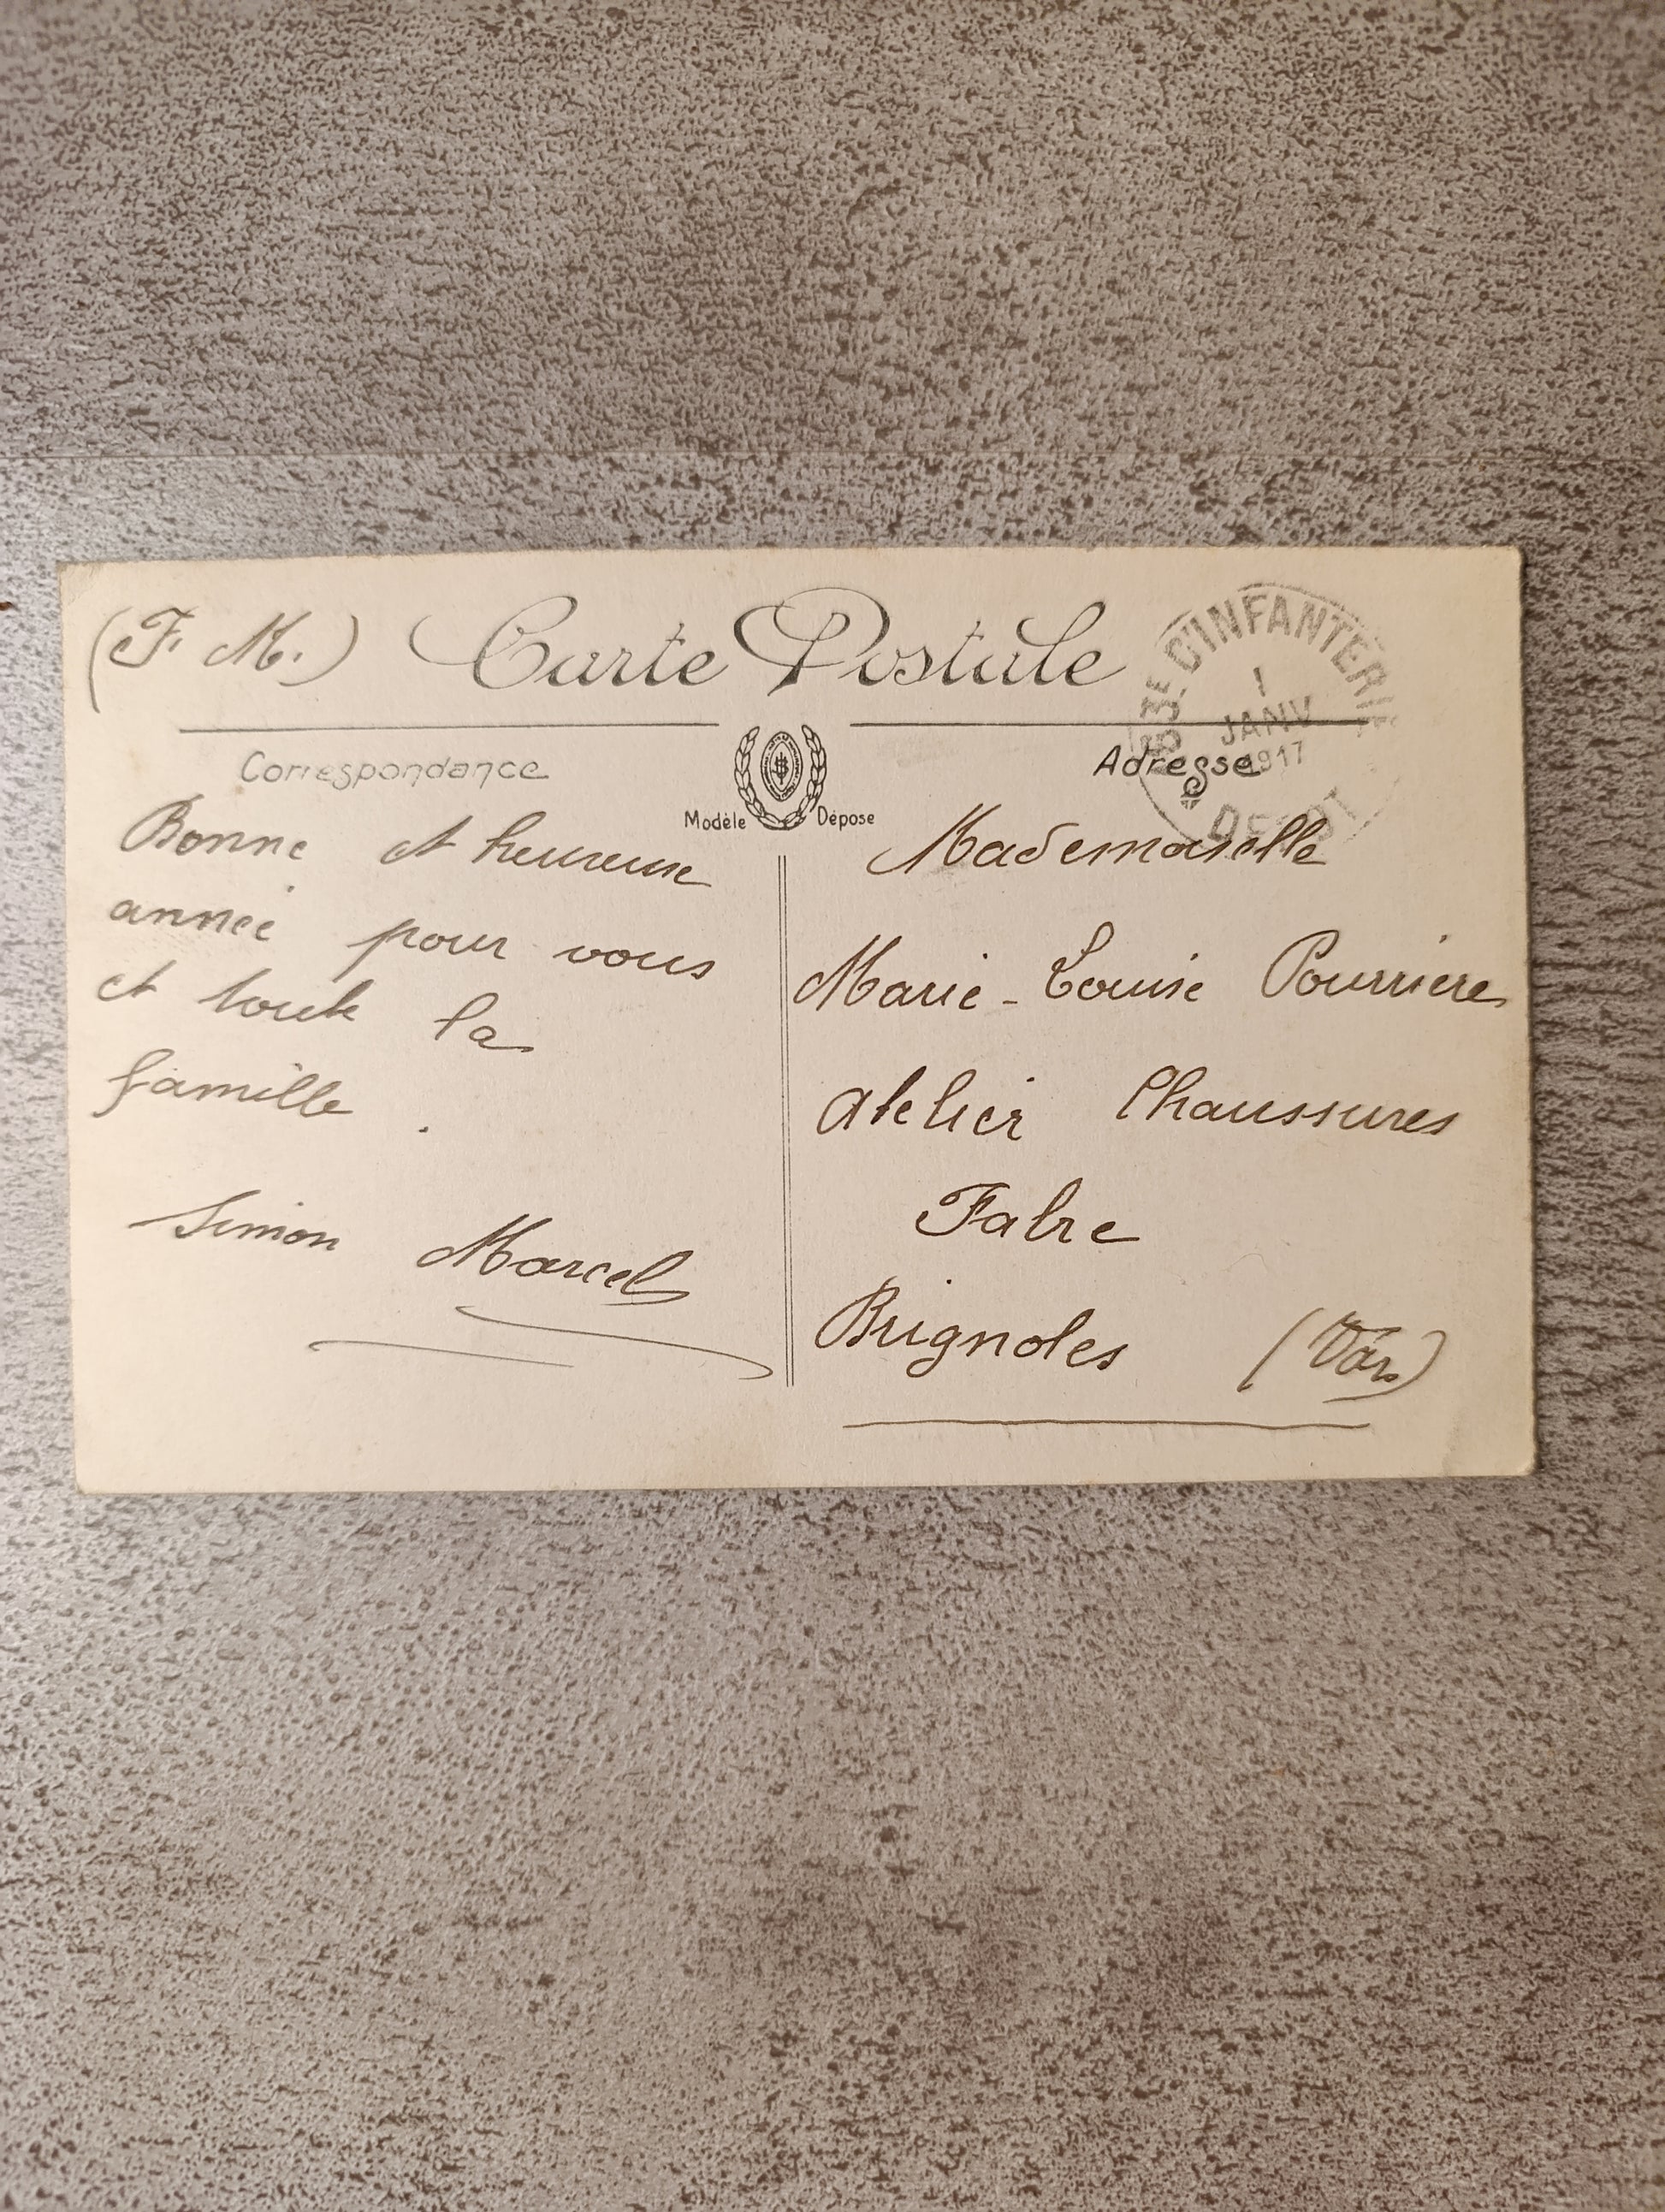 (F. M.) Carte Postale
D'INFANTERIE
1
JANV
1917
DEPOT
Correspondance
Adresse
Modèle Déposé
Bonne et heureuse
année pour vous
et toute la
famille.
Simon Marcel
Mademoiselle
Marie-Louise Pourrière
Atelier Chaussures
Fabre
Brignoles (Var)